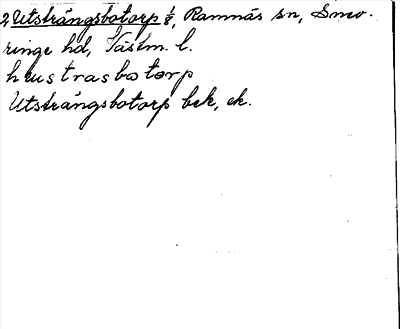 2 Utsträngsbotorp 1/8, Ramnäs sn, Snev-
ringe hd, Västm. l.
hustrasbotorp
Utsträngsbotorp bek, ek.